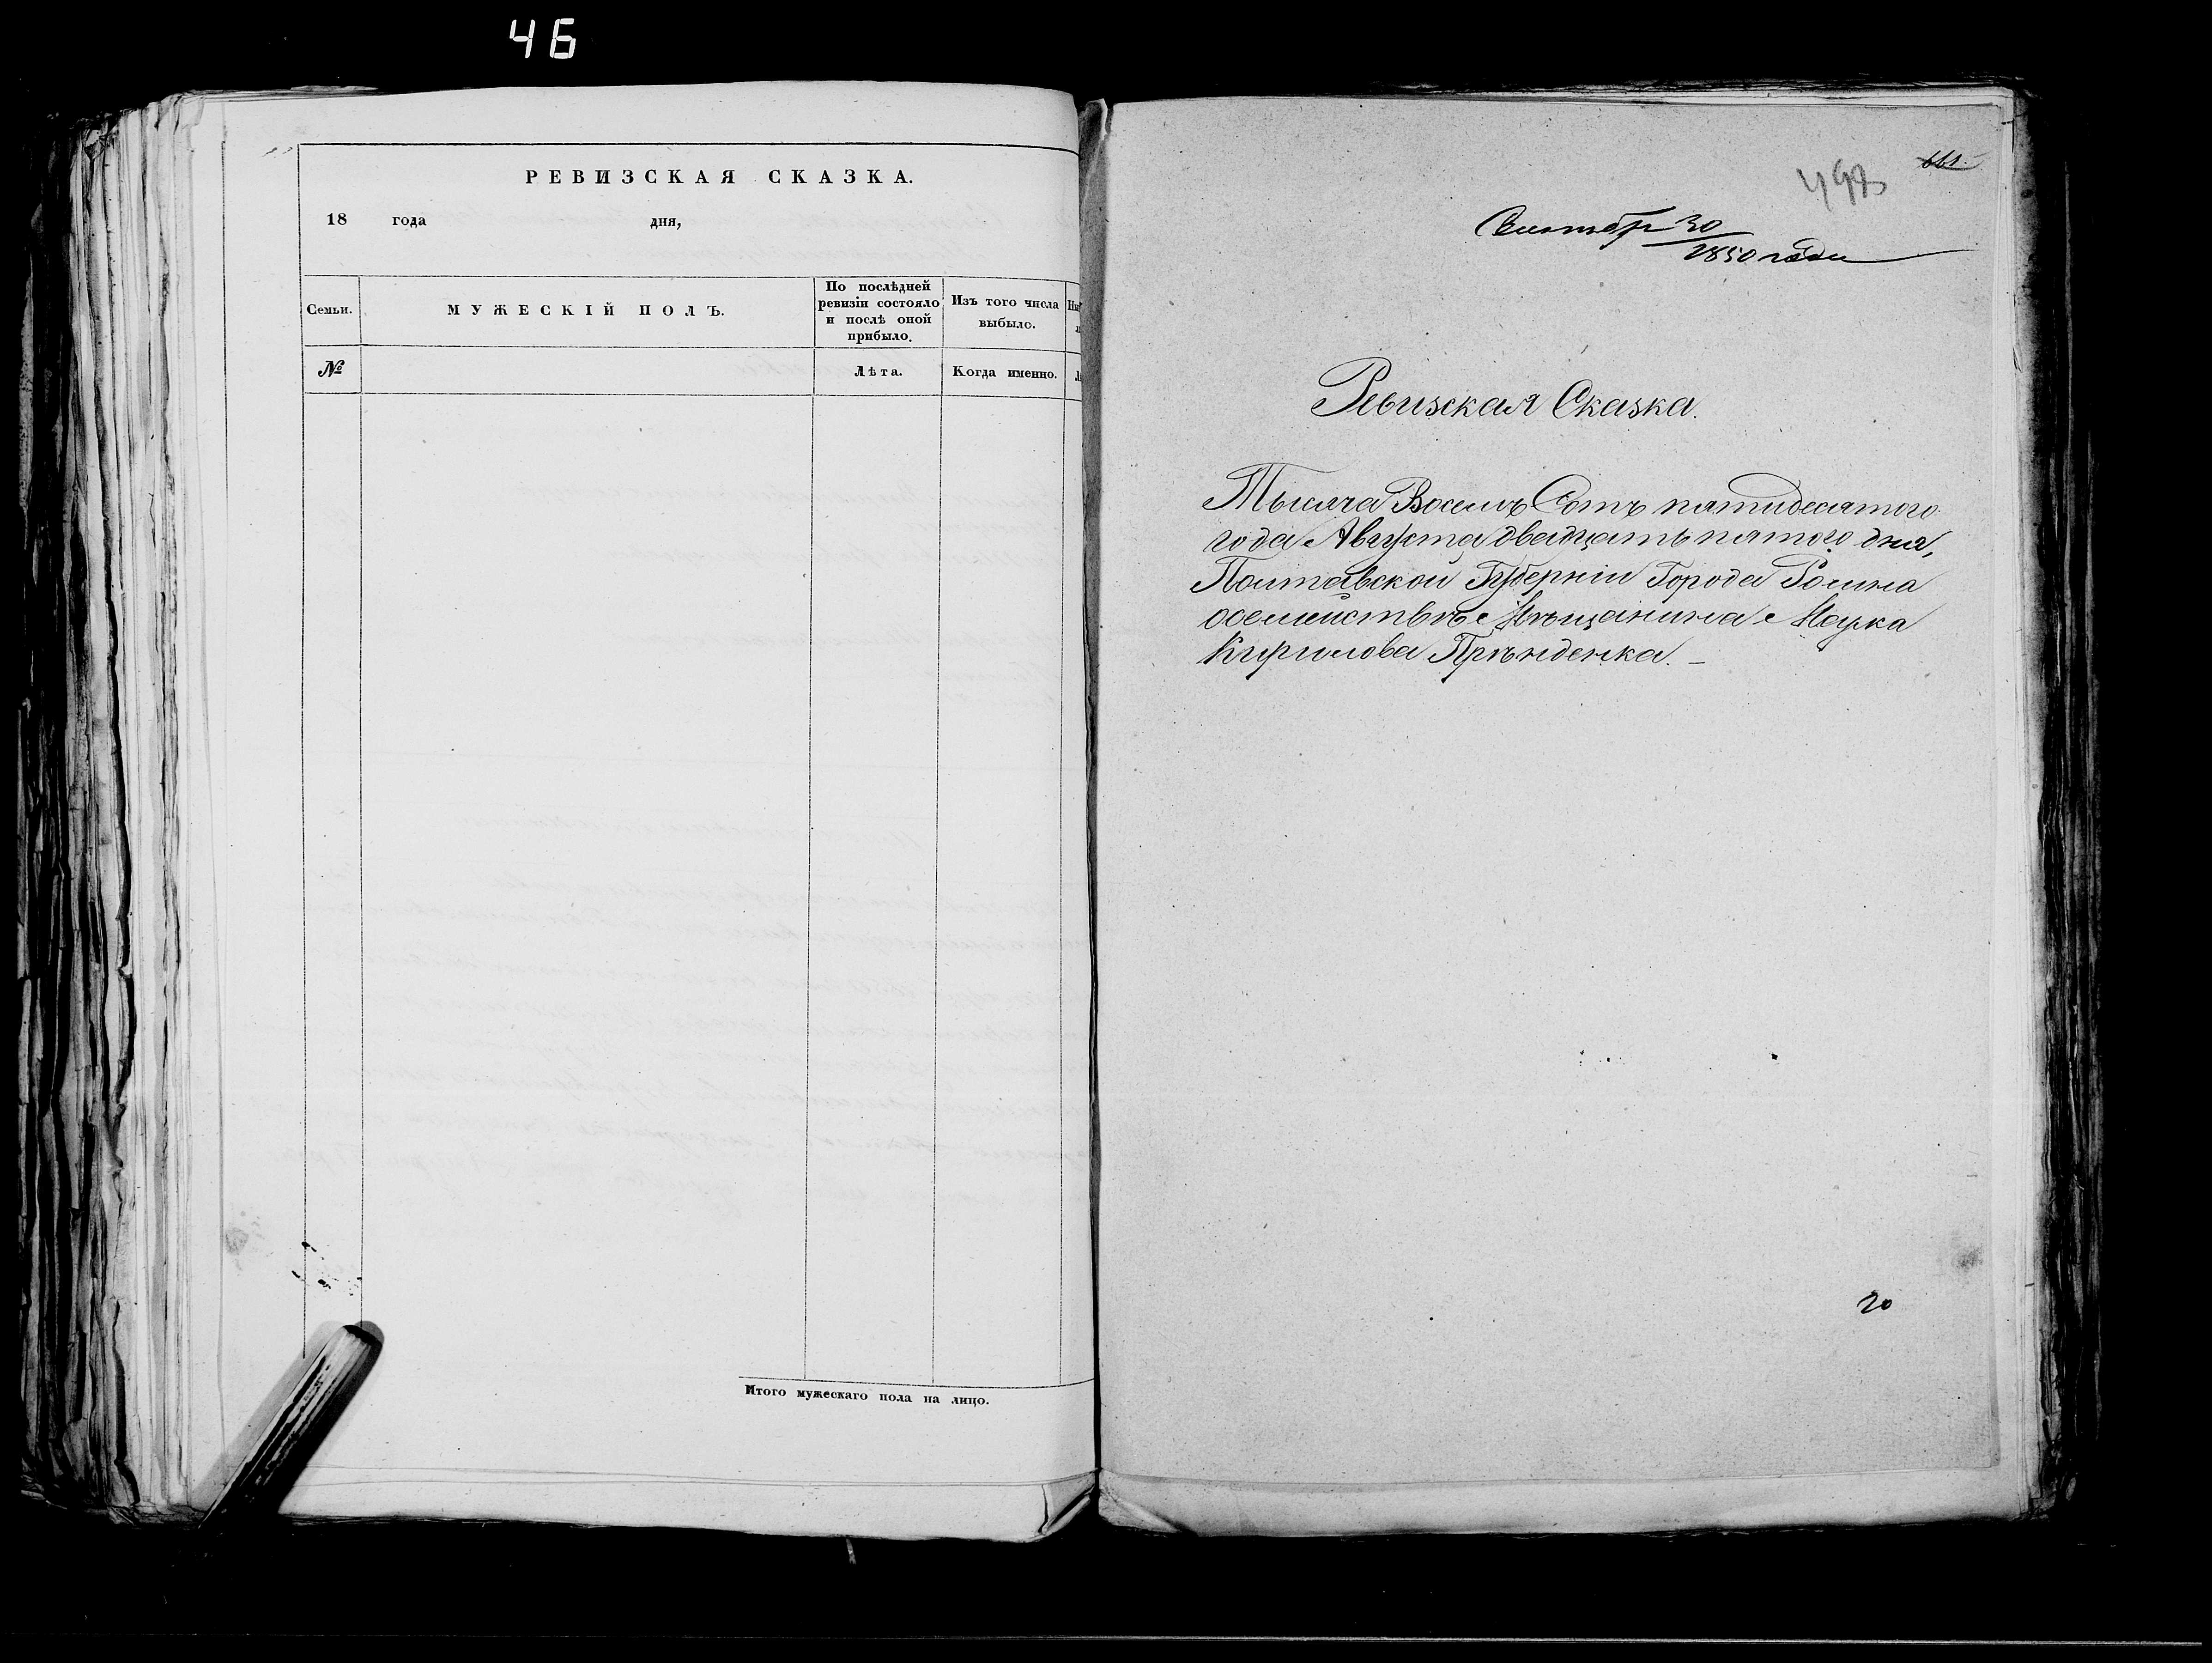 46
РЕВИЗСКАЯ СКАЗКА.
18 года дня,
Семьи.
МУЖЕСКІЙ ПОЛЪ.
По послѣдней
ревизіи состояло
и послѣ оной
прибыло.
Изъ того числа
выбыло.
№
Лѣта.
Когда именно.
Итого мужескаго пола на лицо.
661.
Сентябр 30
1850 года
Ревизская Сказка.
Тысяча Восемъ Сотъ пятидесятого
года Августа двадцать пятого дня,
Полтавской Губерніи Города Ромна
осемействѣ Мѣщанина
Кирилова
20